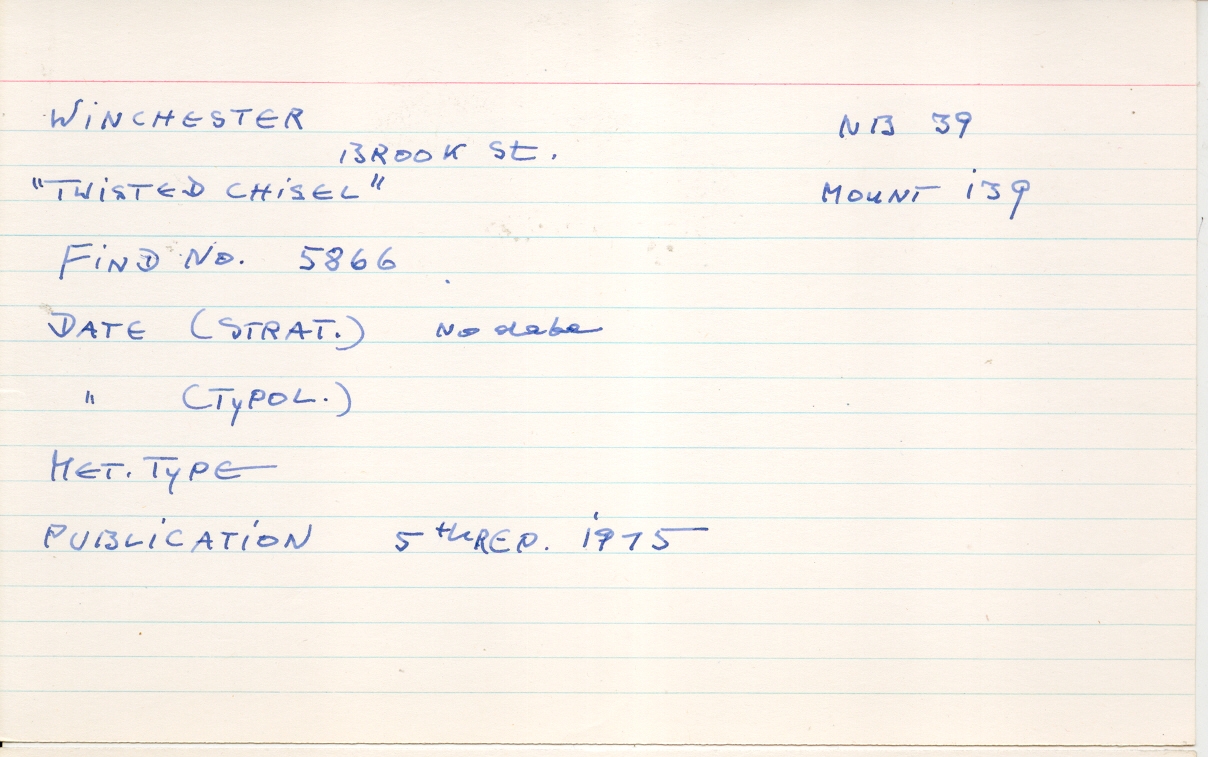 WINCHESTER NB 39
BROOK St.
"TWISTED CHISEL" MOUNT 139
FIND No. 5866
DATE (STRAT.) No date
" (TYPOL.)
MET. TYPE
PUBLICATION 5th REP. 1975